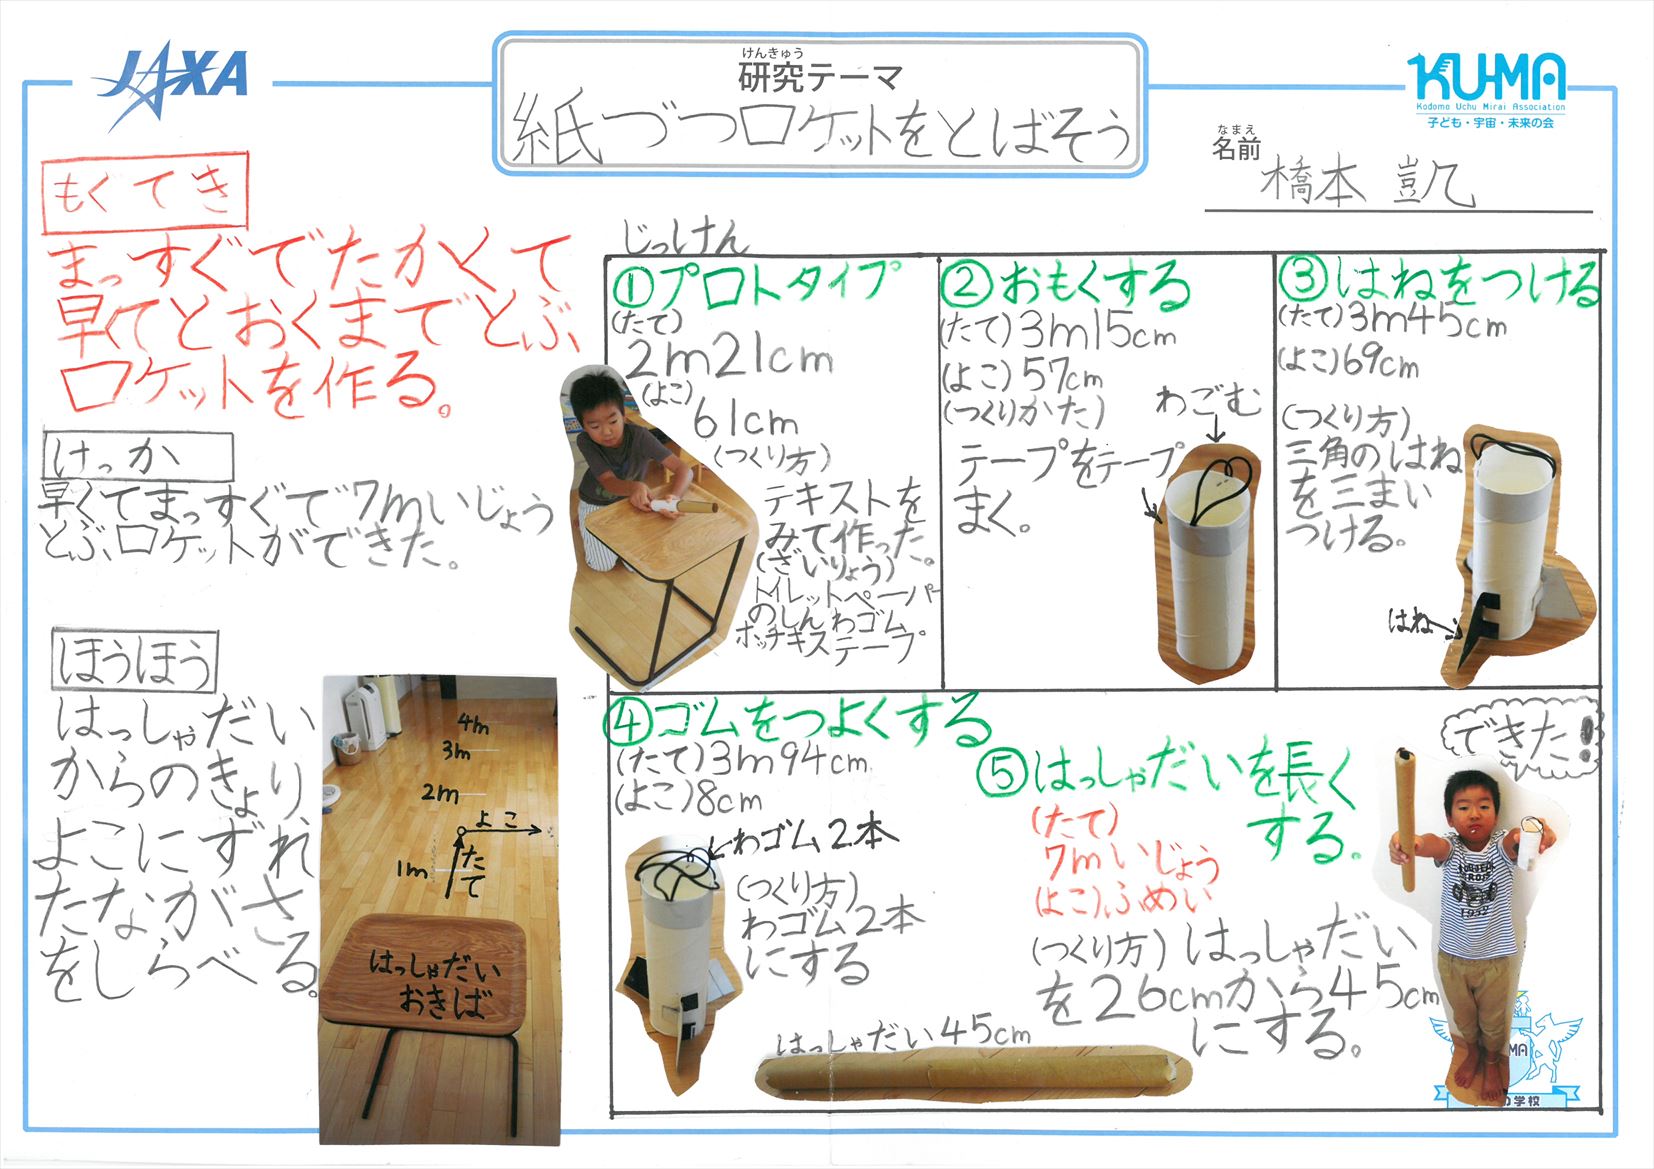 JAXA
けんきゅう
研究テーマ
紙づつロケットをとばそう
KU-MA
Kodomo Uchu Mirai Association
子ども・宇宙・未来の会
なまえ
名前
橋本 凱
もくてき
まっすぐでたかくて
早くてとおくまでとぶ
ロケットを作る。
けっか
早くてまっすぐで7mいじょう
とぶロケットができた。
ほうほう
はっしゃだい
からのきょり、
よこにずれ
たながさ
をしらべる。
4m
3m
2m
よこ
たて
1m
はっしゃだい
おきば
じっけん
①プロトタイプ
(たて)
2m21cm
(よこ)
61cm
(つくり方)
テキストを
みて作った。
(ざいりょう)
トイレットペーパー
のしんわゴム
ホッチキステープ
②おもくする
(たて)3m15cm
(よこ)57cm
(つくりかた)
わごむ
テープをテープ
まく。
③はねをつける
(たて)3m45cm
(よこ)69cm
(つくり方)
三角のはね
を三まい
つける。
はね
④ゴムをつよくする
(たて)3m94cm
(よこ)8cm
わゴム2本
(つくり方)
わゴム2本
にする
⑤はっしゃだいを長く
する。
(たて)
7mいじょう
(よこ)ふめい
(つくり方)はっしゃだい
を26cmから45cm
にする。
はっしゃだい45cm
できた!
1932
MA
の学校